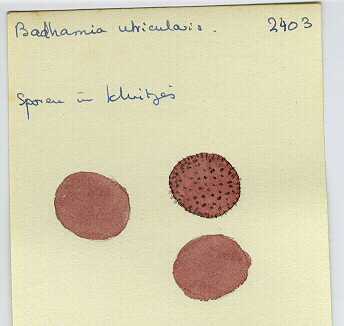 Badhamia utricularis. 2403
Sporen in kluitjes